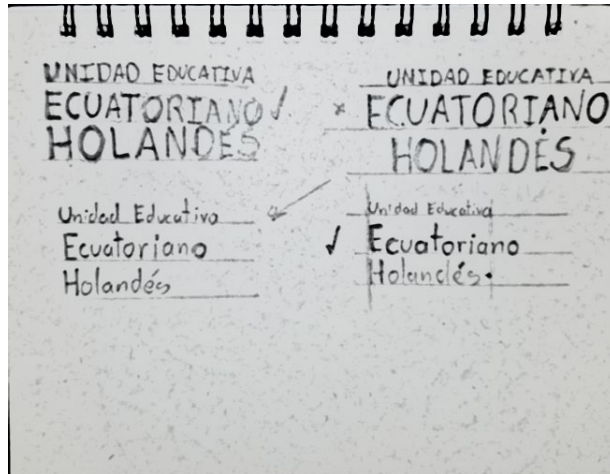 UNIDAD EDUCATIVA
ECUATORIANO
HOLANDÉS
UNIDAD EDUCATIVA
ECUATORIANO
HOLANDÉS
Unidad Educativa
Ecuatoriano
Holandés
Unidad Educativa
Ecuatoriano
Holandés